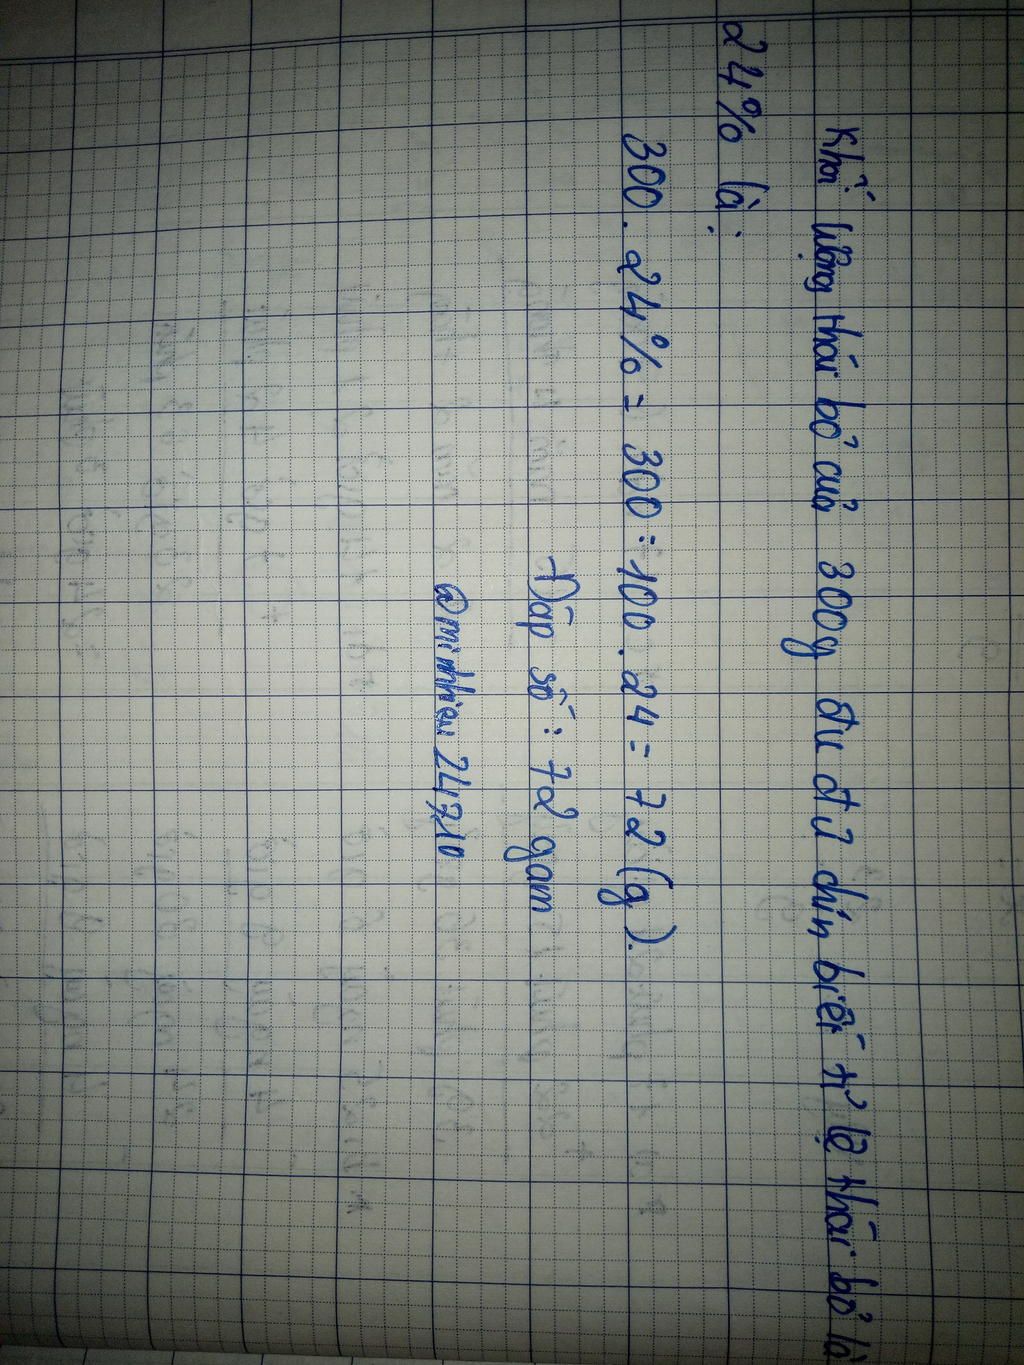 Khối lượng thải bỏ của 300g đu đủ chín biết tỉ lệ thải bỏ là
24% là:
300 . 24% = 300 : 100 . 24 = 72 (g).
Đáp số : 72 gam